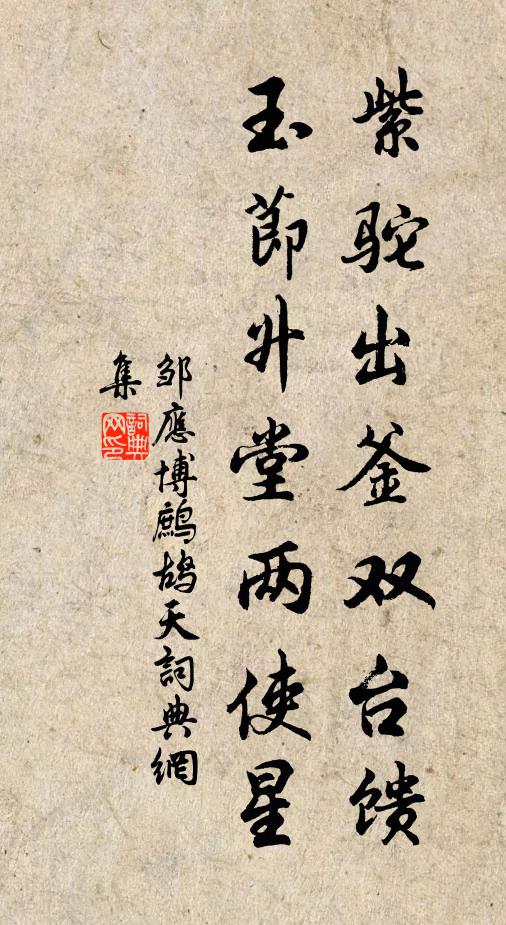 紫驼出釜双台馈
玉節升堂两使星
邹應博鷓鴣天詞典網
集
詞典网印